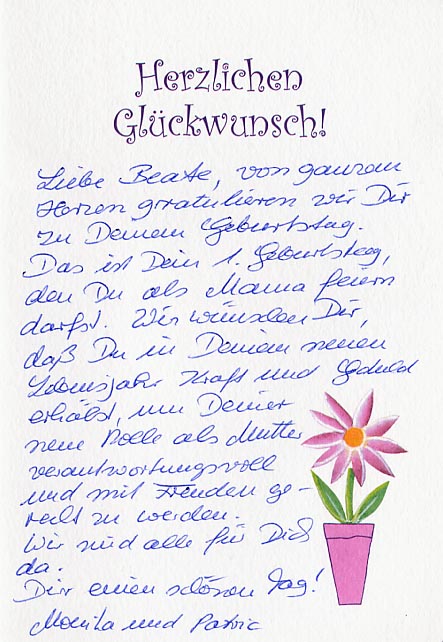 Herzlichen
Glückwunsch!
Liebe Beate, von ganzem
Herzen gratulieren wir Dir
zu Deinem Geburtstag.
Das ist Dein 1. Geburtstag,
den Du als Mama feiern
darfst. Wir wünschen Dir,
daß Du in Deinem neuen
Lebensjahr Kraft und Geduld
erhälst, um Deiner
neue Rolle als Mutter
verantwortungsvoll
und mit Freuden ge-
recht zu werden.
Wir sind alle für Dich
da.
Dir einen schönen Tag!
Monika und Patric